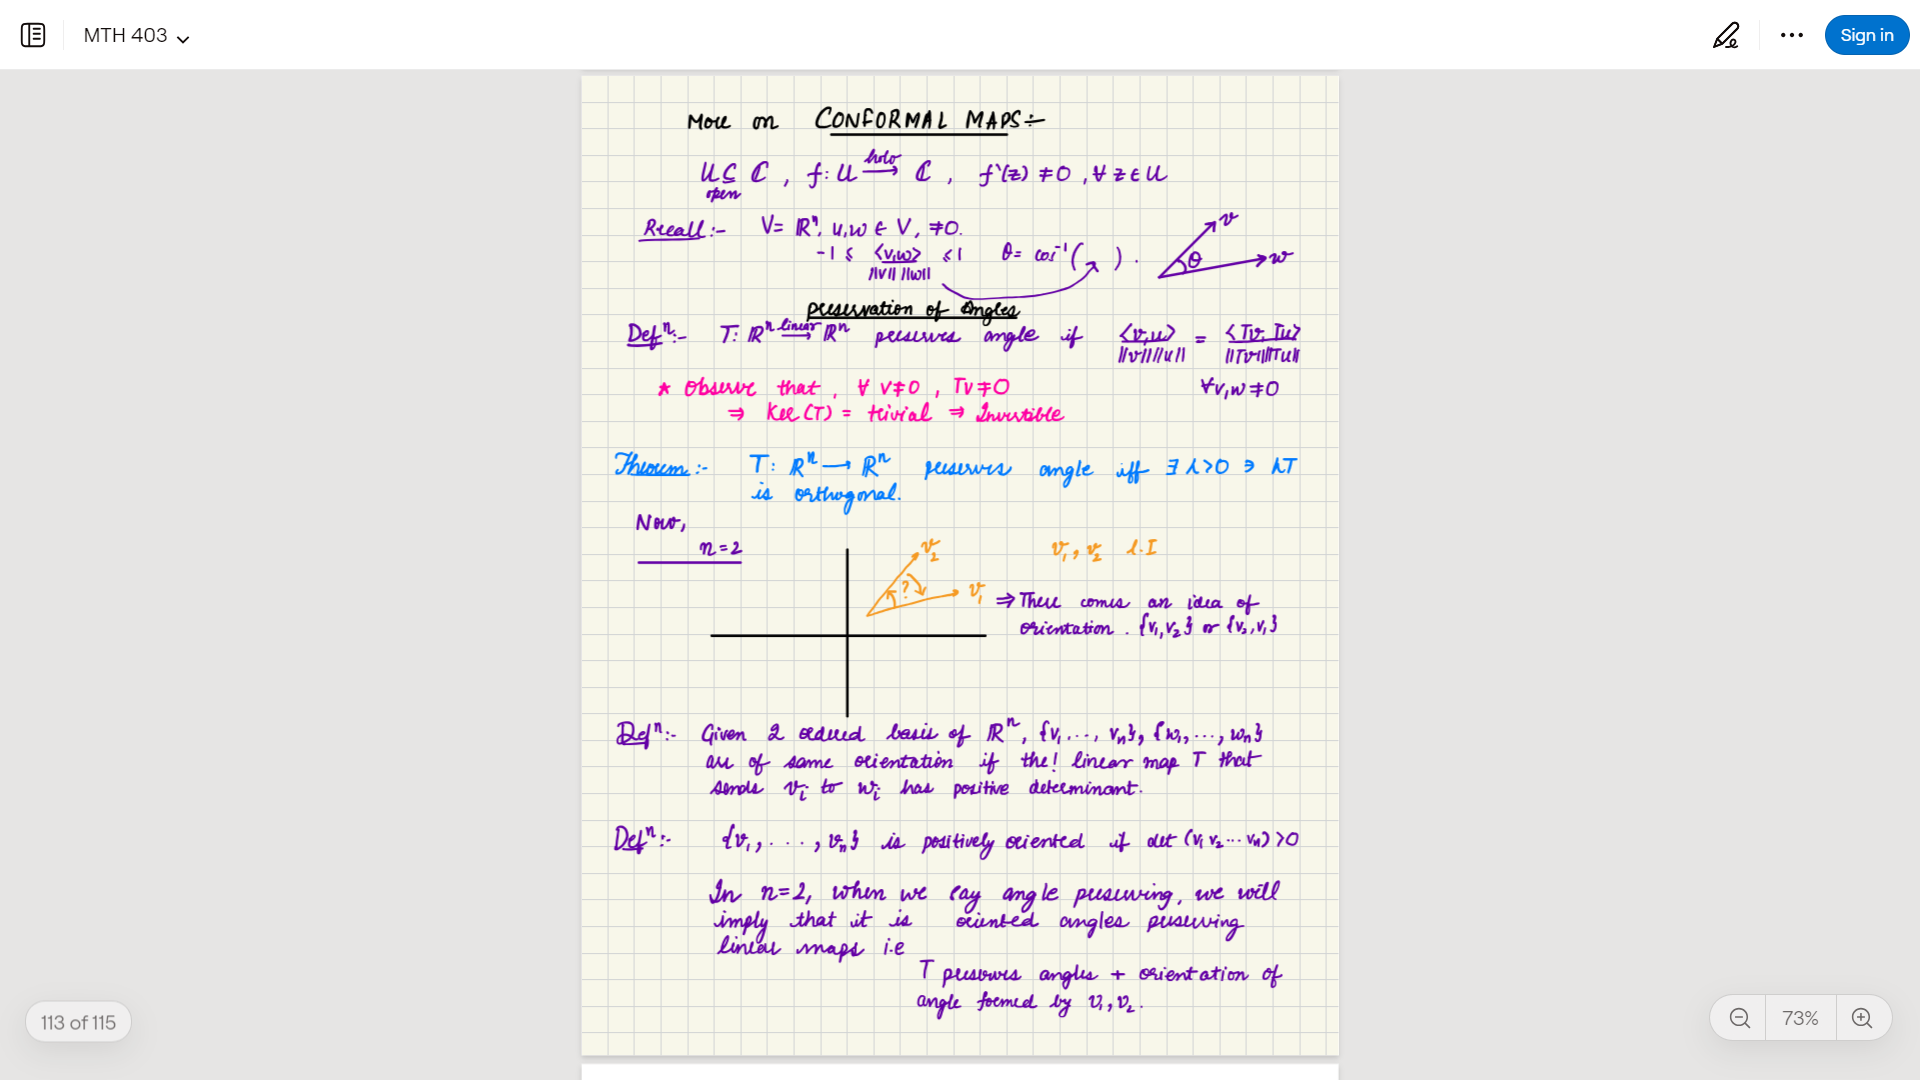 MTH 403
Sign in
More on CONFORMAL MAPS:-
U ⊆ ℂ , f: U → ℂ , f'(z) ≠ 0 , ∀ z ∈ U
open
holo
Recall :- V = ℝⁿ, u,w ∈ V, ≠0.
-1 ≤ <v,w> / ||v|| ||w|| ≤ 1 θ = cos⁻¹( ) .
v
θ
w
Preservation of Angles
Defⁿ:- T: ℝⁿ linear → ℝⁿ preserves angle if <v,u> / ||v|| ||u|| = <Tv, Tu> / ||Tv|| ||Tu||
* Observe that , ∀ v≠0 , Tv≠0 ∀ v,w ≠ 0
⇒ Ker(T) = trivial ⇒ Invertible
Theorem :- T: ℝⁿ → ℝⁿ preserves angle iff ∃ λ>0 ∋ λT
is orthogonal.
Now,
n=2
v₂
?
v₁
v₁, v₂ l.I
⇒ There comes an idea of
orientation . {v₁,v₂} or {v₂,v₁}
Defⁿ:- Given 2 ordered basis of ℝⁿ, {v₁..., vₙ}, {w₁,..., wₙ}
are of same orientation if the! linear map T that
sends vᵢ to wᵢ has positive determinant.
Defⁿ:- {v₁, ..., vₙ} is positively oriented if det (v₁ v₂ ... vₙ) >0
In n=2, when we say angle preserving, we will
imply that it is oriented angles preserving
linear maps i.e
T preserves angles + orientation of
angle formed by v₁,v₂.
113 of 115
73%